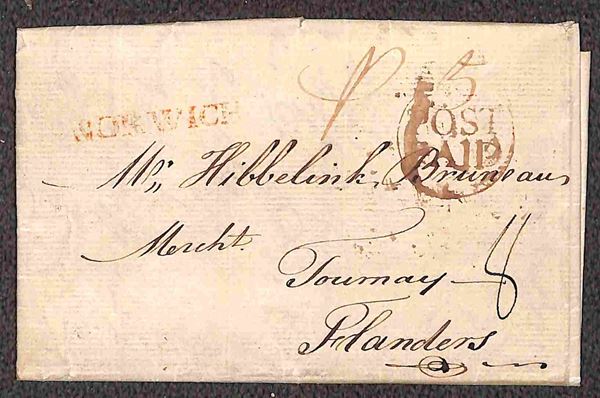 NORWICH
P 5
POST
PAID
Mr. Hibbelink, Bruneau
Mercht.
Tournay
Flanders